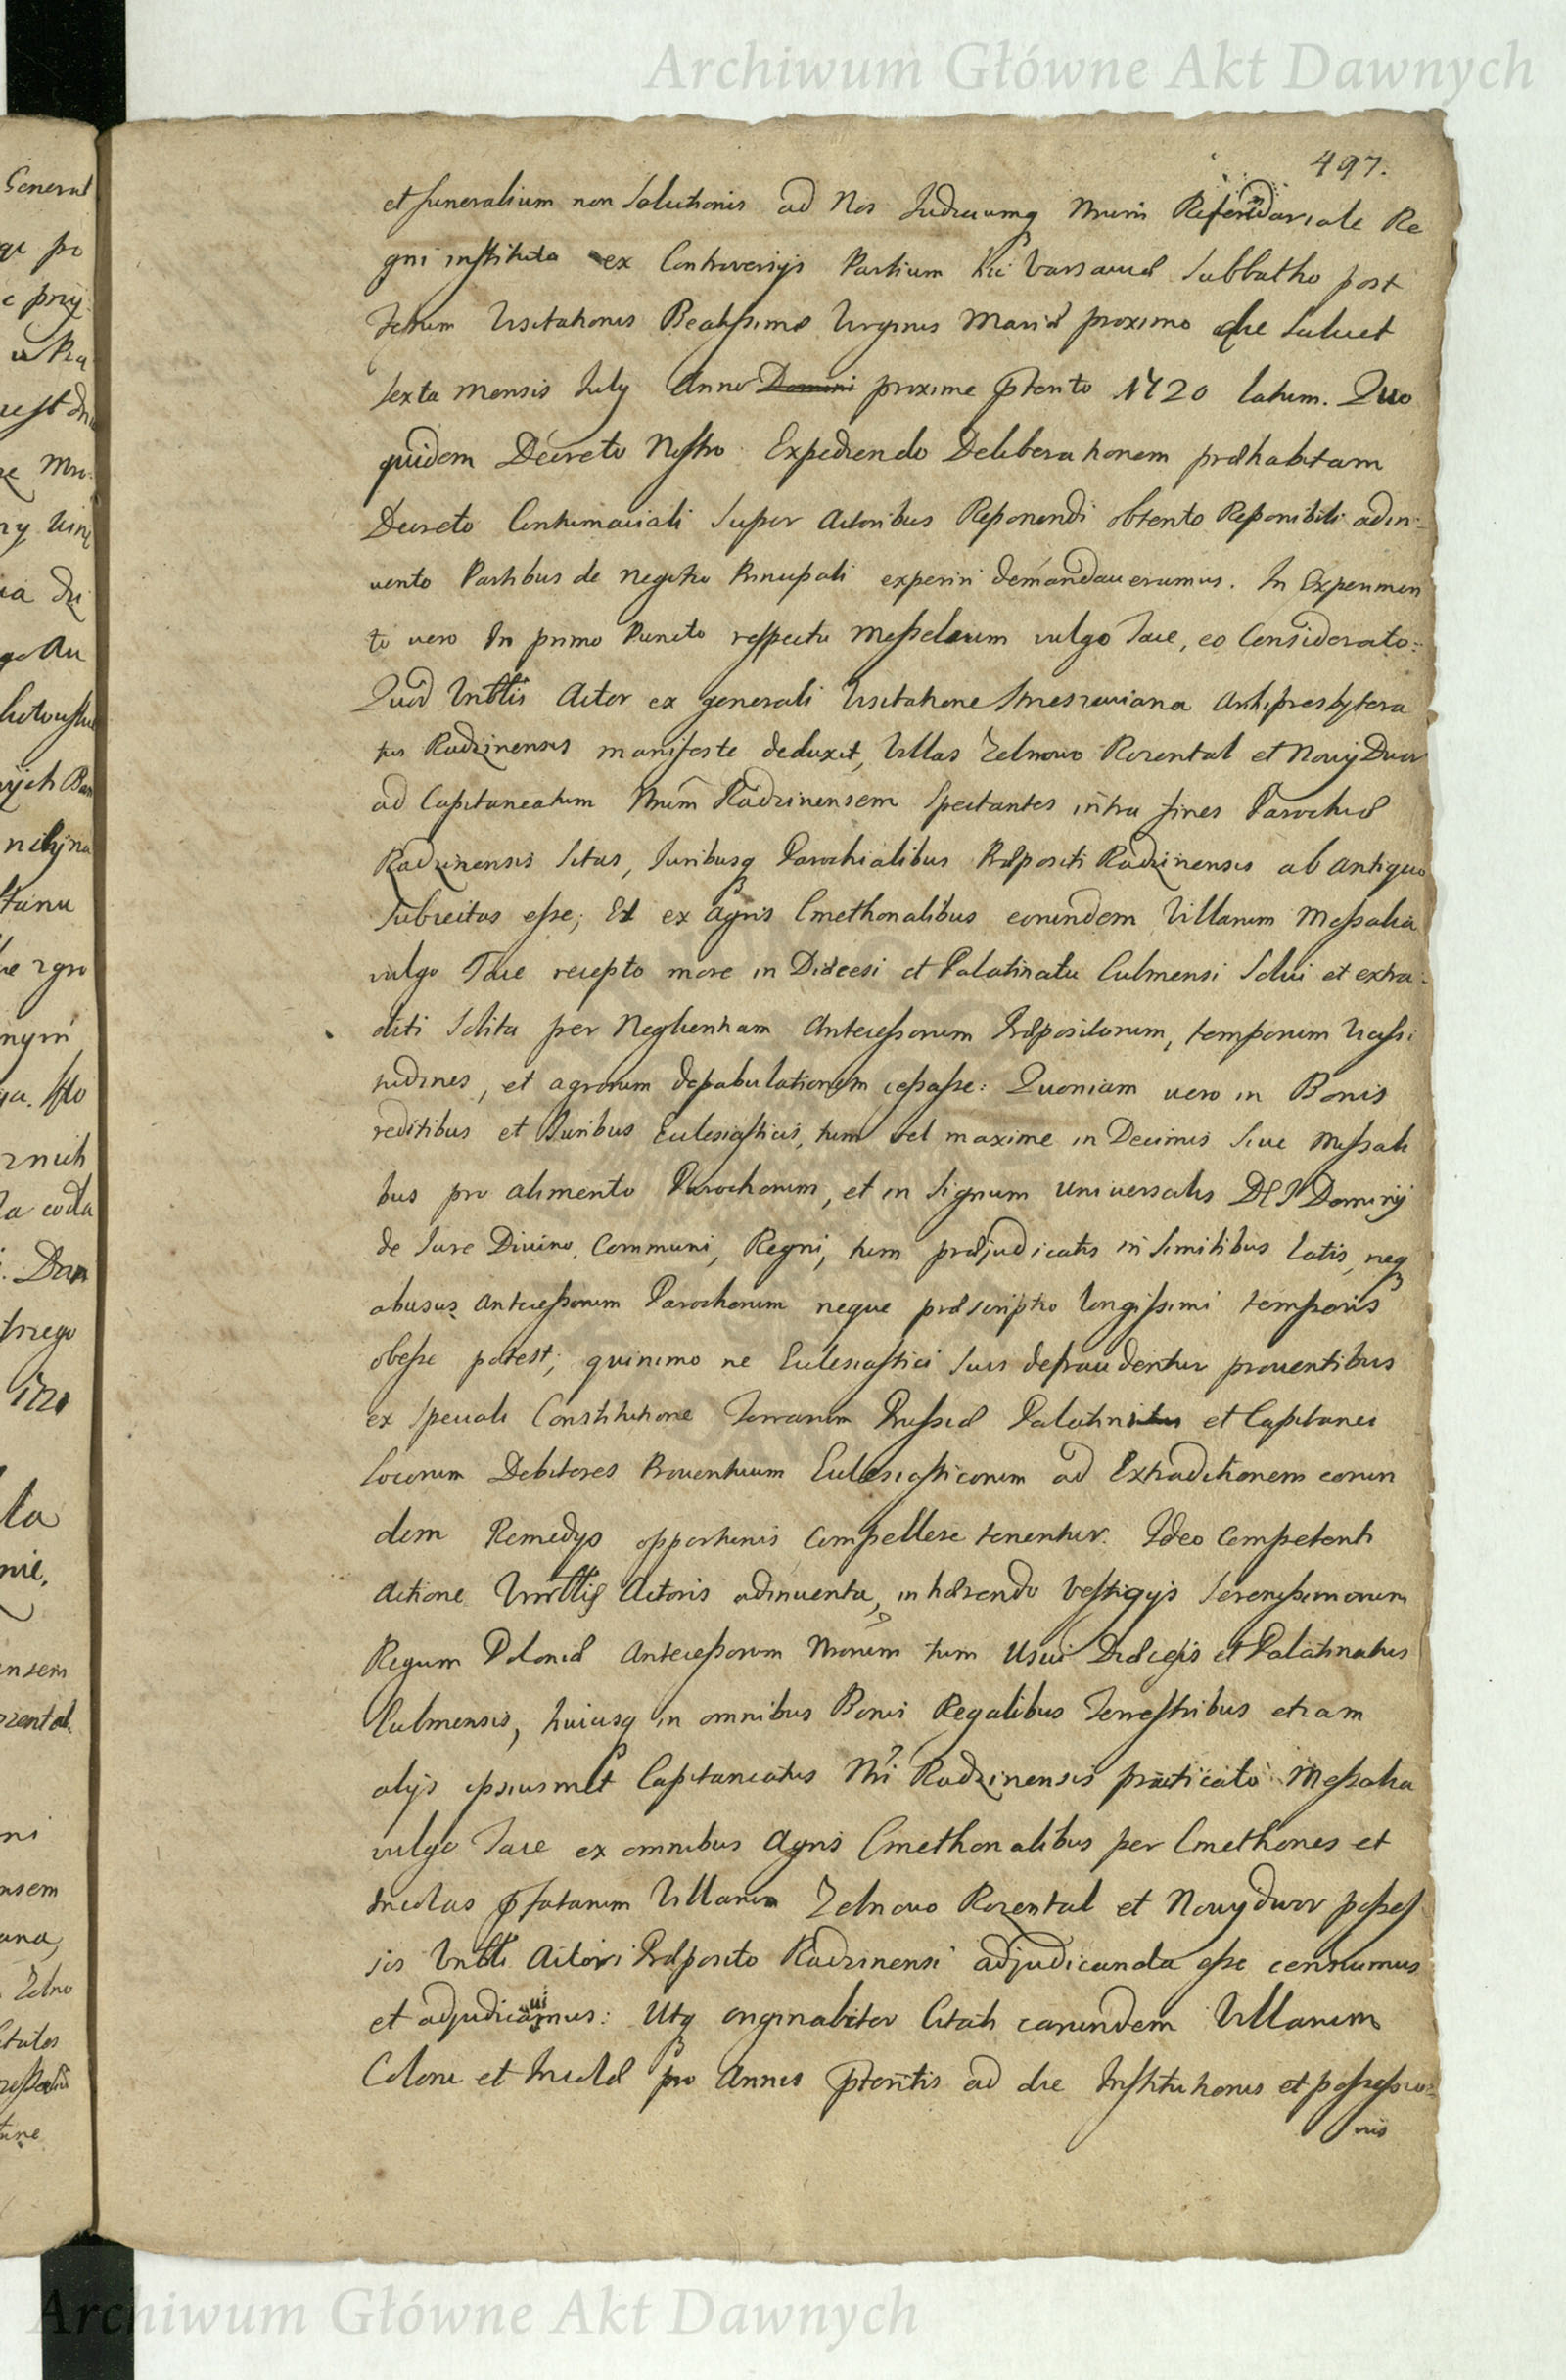 Archiwum Główne Akt Dawnych
497.
et funeralium non Solutionis ad Nos Judiciumq Nrum Referendariale Re
gni instituta ex Controversijs Partium hic Varsaviæ Sabbatho post
Festum Visitationis Beatissimæ Virginis Mariæ proximo die Scilicet
Sexta Mensis July Anno Domini proxime pterito 1720 latum. Quo
quidem Decreto Nostro Expediendo Deliberationem præhabitam
Decreto Contumaciali Super Actoribus Reponendi obtento Reponibili adin-
vento Partibus de Negotio Principali experiri demandaveramus. In Experimen
to vero In primo Puncto respectu Messalium vulgo Tace, eo Considerato:
Quod Vnblis Actor ex generali Visitatione Strzesziana Archipresbytera
tus Radzinensis manifeste deduxit, Villas Zelnowo Rozental et NowyDwor
ad Capitaneatum Nrum Radzinensem Spectantes intra fines Parochiæ
Radzinensis Sitas, Juribusq Parochialibus Præpositi Radzinensis ab antiquo
Subiectas esse; Et ex Agris Cmethonalibus earundem Villarum Messalia
vulgo Tace recepto more in Diæcesi et Palatinatu Culmensi Solui et extra-
diti Solita per Negligentiam Antecessorum Præpositorum, temporum Vicissi
tudines, et agrorum depabulationem cessasse: Quoniam vero in Bonis
reditibus et Juribus Ecclesiasticis, tum vel maxime in Decimis Siue Messali
bus pro alimento Parochorum, et in Signum Universalis DEI Dominij
de Jure Divino, Communi, Regni, tum præjudicatis in Similibus Latis, neq
abusus Antecessorum Parochorum neque præscriptio longissimi temporis
obesse potest; quinimo ne Ecclesiastici Suis defraudentur proventibus
ex Speciali Constitutione Terrarum Prussiæ Palatini et Capitanei
Locorum Debitores Proventuum Ecclesiasticorum ad Extraditionem eorun
dem Remedys opportunis Compellere tenentur. Ideo Competenti
Actione Vnblis Actoris adinventa, inhærendo Vestigijs Serenissimorum
Regum Poloniæ Antecessorum Nrorum tum Usui Diæcesis et Palatinatus
Culmensis, huiusq in omnibus Bonis Regalibus Terrestribus etiam
alijs ipsiusmet Capitaneatus Nri Radzinensis practicato Messalia
vulgo Tace ex omnibus Agris Cmethonalibus per Cmethones et
Incolas pfatarum Villarum Zelnowo Rozental et Nowydwor posses
sis Vnbli Actori Præposito Radzinensi adjudicanda esse censuimus
et adjudicauimus: Utq originaliter Citati earundem Villarum
Coloni et Incolæ pro Annis pteritis ad die Institutionis et possessio-
nis
Archiwum Główne Akt Dawnych